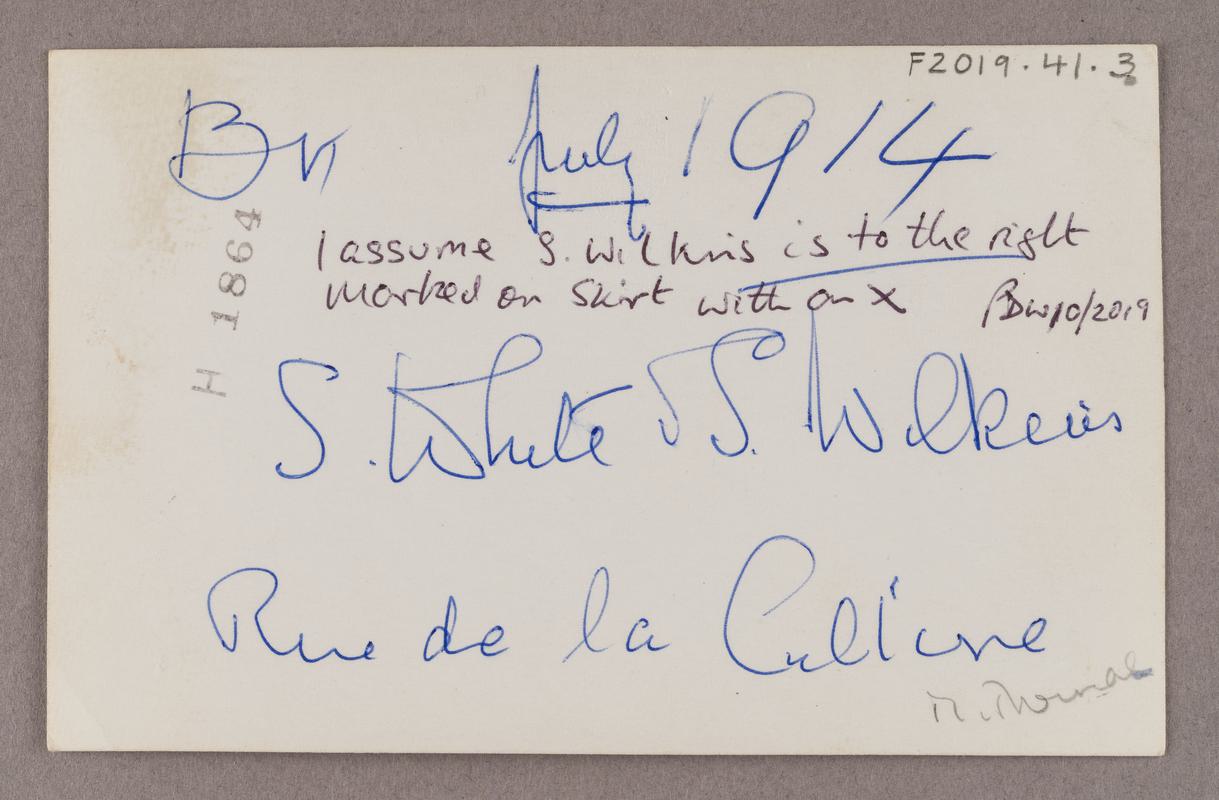 F2019.41.3
July 1914
I assume S. Wilkins is to the right
marked on skirt with an X BDW 10/2019
H 1864
S. White S. Wilkins
Rue de la Culture